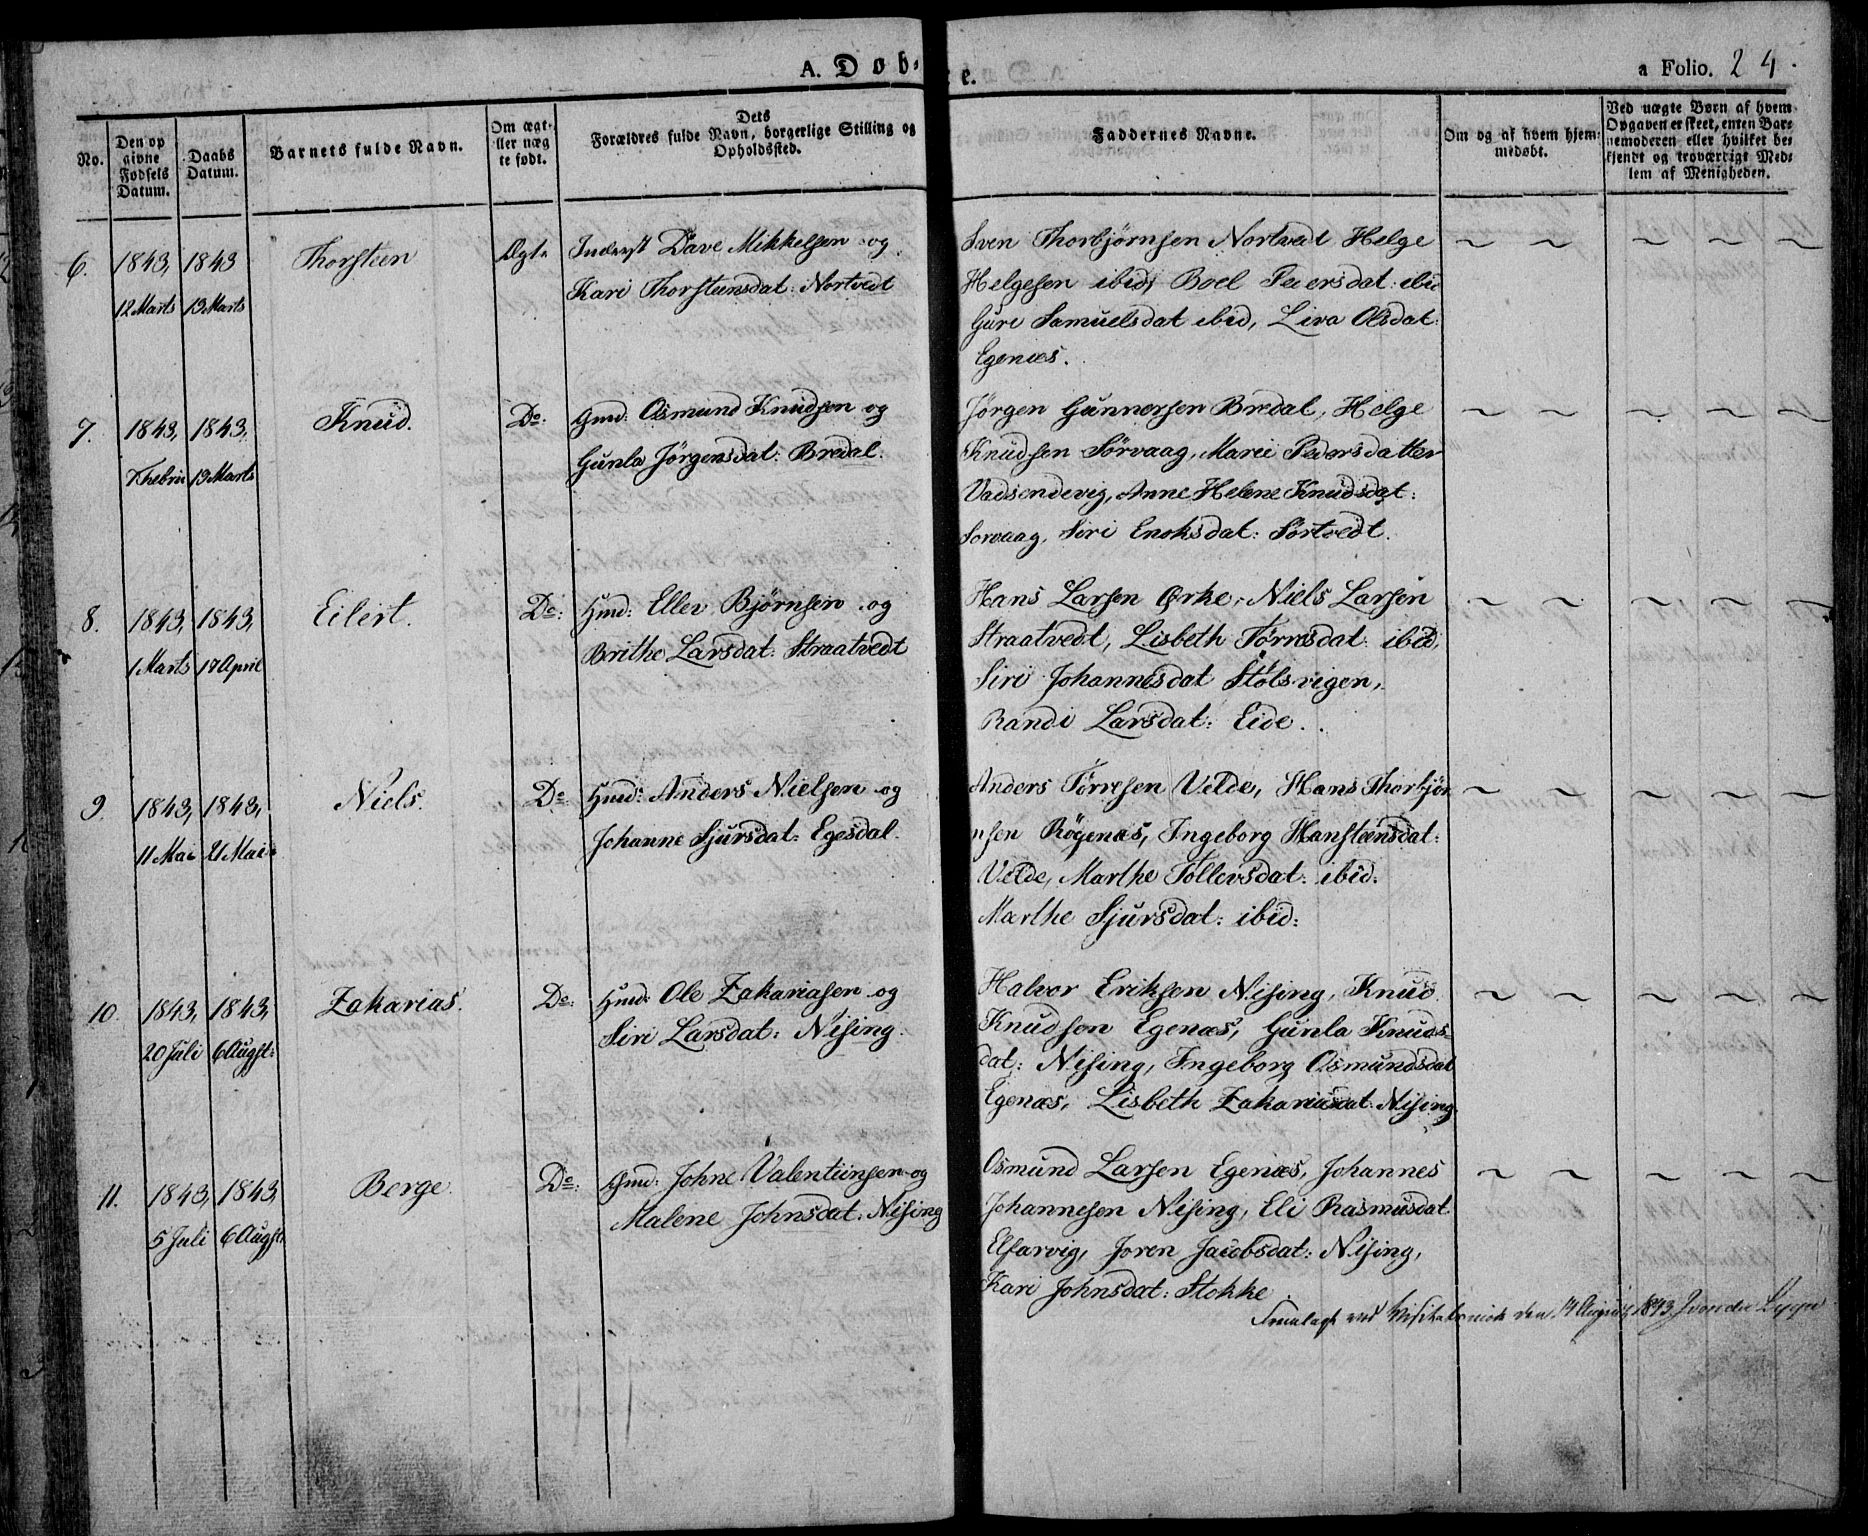 A. Døb=
e.
a Folio. 24.
No.
Den op
givne
Fødsels
Datum.
Daabs
Datum.
Barnets fulde Navn.
Om ægt=
ller næg
te født.
Dets
Forældres fulde Navn, borgerlige Stilling og
Opholdssted.
Faddernes Navne.
Om og af hvem hjem=
medøbt.
Ved uægte Børn af hvem
Opgaven er skeet, enten Bar=
nemoderen eller hvilket be=
kjendt og troværdigt Med=
lem af Menigheden.
6. 1843, 1843 Thorsteen Ægte Inderst Dave Mikkelsen og
12 Marts 13 Marts Kari Thorsteensdat: Nortvedt
Sven Thorbjørnsen Nortvedt Helge
Helgesen ibid, Boel Pedersdat: ibid
Guri Samuelsdat ibid, Liva Olsdat:
Egenæs.
7. 1843, 1843, Knud. Do: Gmd: Osmund Knudsen og
7 Febru 13 Marts Gunla Jørgensdat: Bredal.
Jørgen Gunnersen Bredal, Helge
Knudsen Sörvaag, Marie Pedersdatter
Vadsendevig, Anne Helene Knudsdat:
Sorvaag, Siri Enoksdat: Sørtvedt.
8. 1843, 1843, Eilert. Do: Hmd: Ellev Bjørnsen og
1 Marts 17 April Brithe Larsdat: Straatvedt
Hans Larsen Ørke, Niels Larsen
Straatvedt, Lisbeth Törresdat: ibid,
Siri Johannesdat Stölsvigen,
Randi Larsdat: Eide.
9. 1843, 1843, Niels. Do: Hmd: Anders Nielsen og
11 Mai 21 Mai Johanne Sjursdat: Egesdal.
Anders Törresen Velde, Hans Thorbjör
nsen Rögenæs, Ingeborg Hansteensdat:
Velde, Marthe Tollevsdat: ibid.
Marthe Sjursdat: ibid:
10. 1843, 1843, Zakarias. Do: Hmd: Ole Zakariasen og
20 Juli 6 Augst: Siri Larsdat: Nising.
Halvor Eriksen Nising, Knud
Knudsen Egenæs, Gunla Knuds=
dat: Nising, Ingeborg Osmundsdat
Egenæs, Lisbeth Zakariasdat: Nising
11. 1843, 1843, Berge. Do: Gmd: Johne Valentinsen og
5 Juli 6 Augst: Malene Johnsdat: Nising
Osmund Larsen Egenæs, Johannes
Johannesen Nising, Eli Rasmusdat
Elfarvig, Joren Jacobsdat: Nising,
Kari Johnsdat: Stokke.
Fremlagt ved Visitatsmöde den 14 August 1843